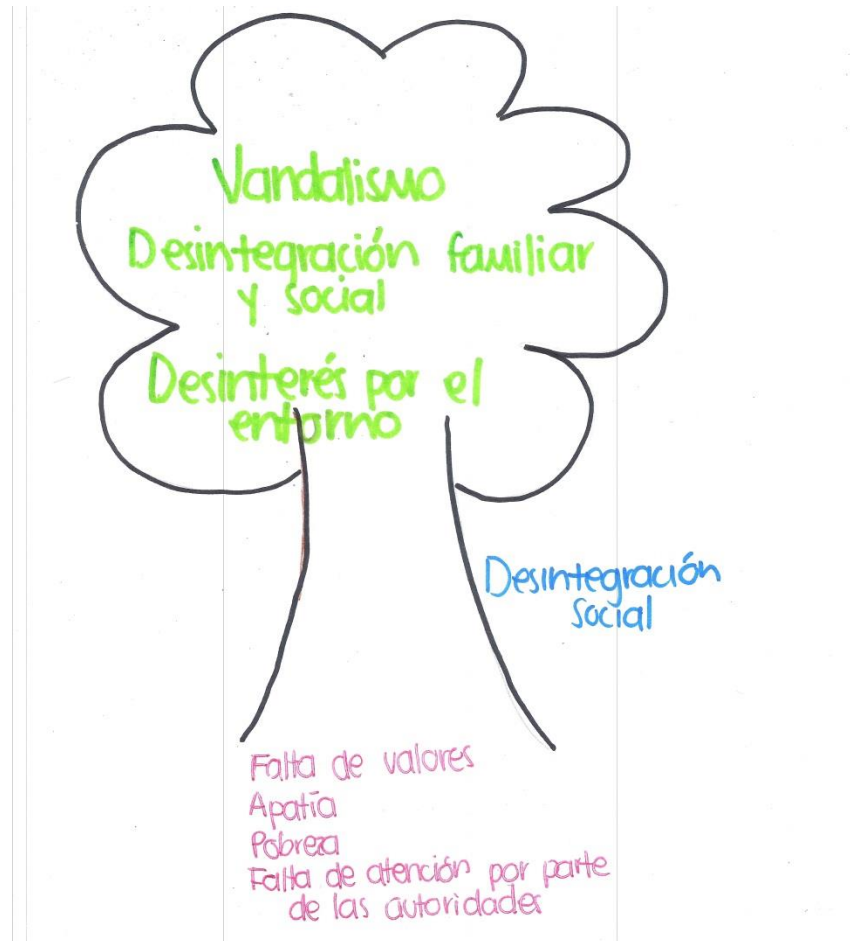 Vandalismo
Desintegración familiar
y social
Desinterés por el
entorno
Desintegración
social
Falta de valores
Apatía
Pobreza
Falta de atención por parte
de las autoridades